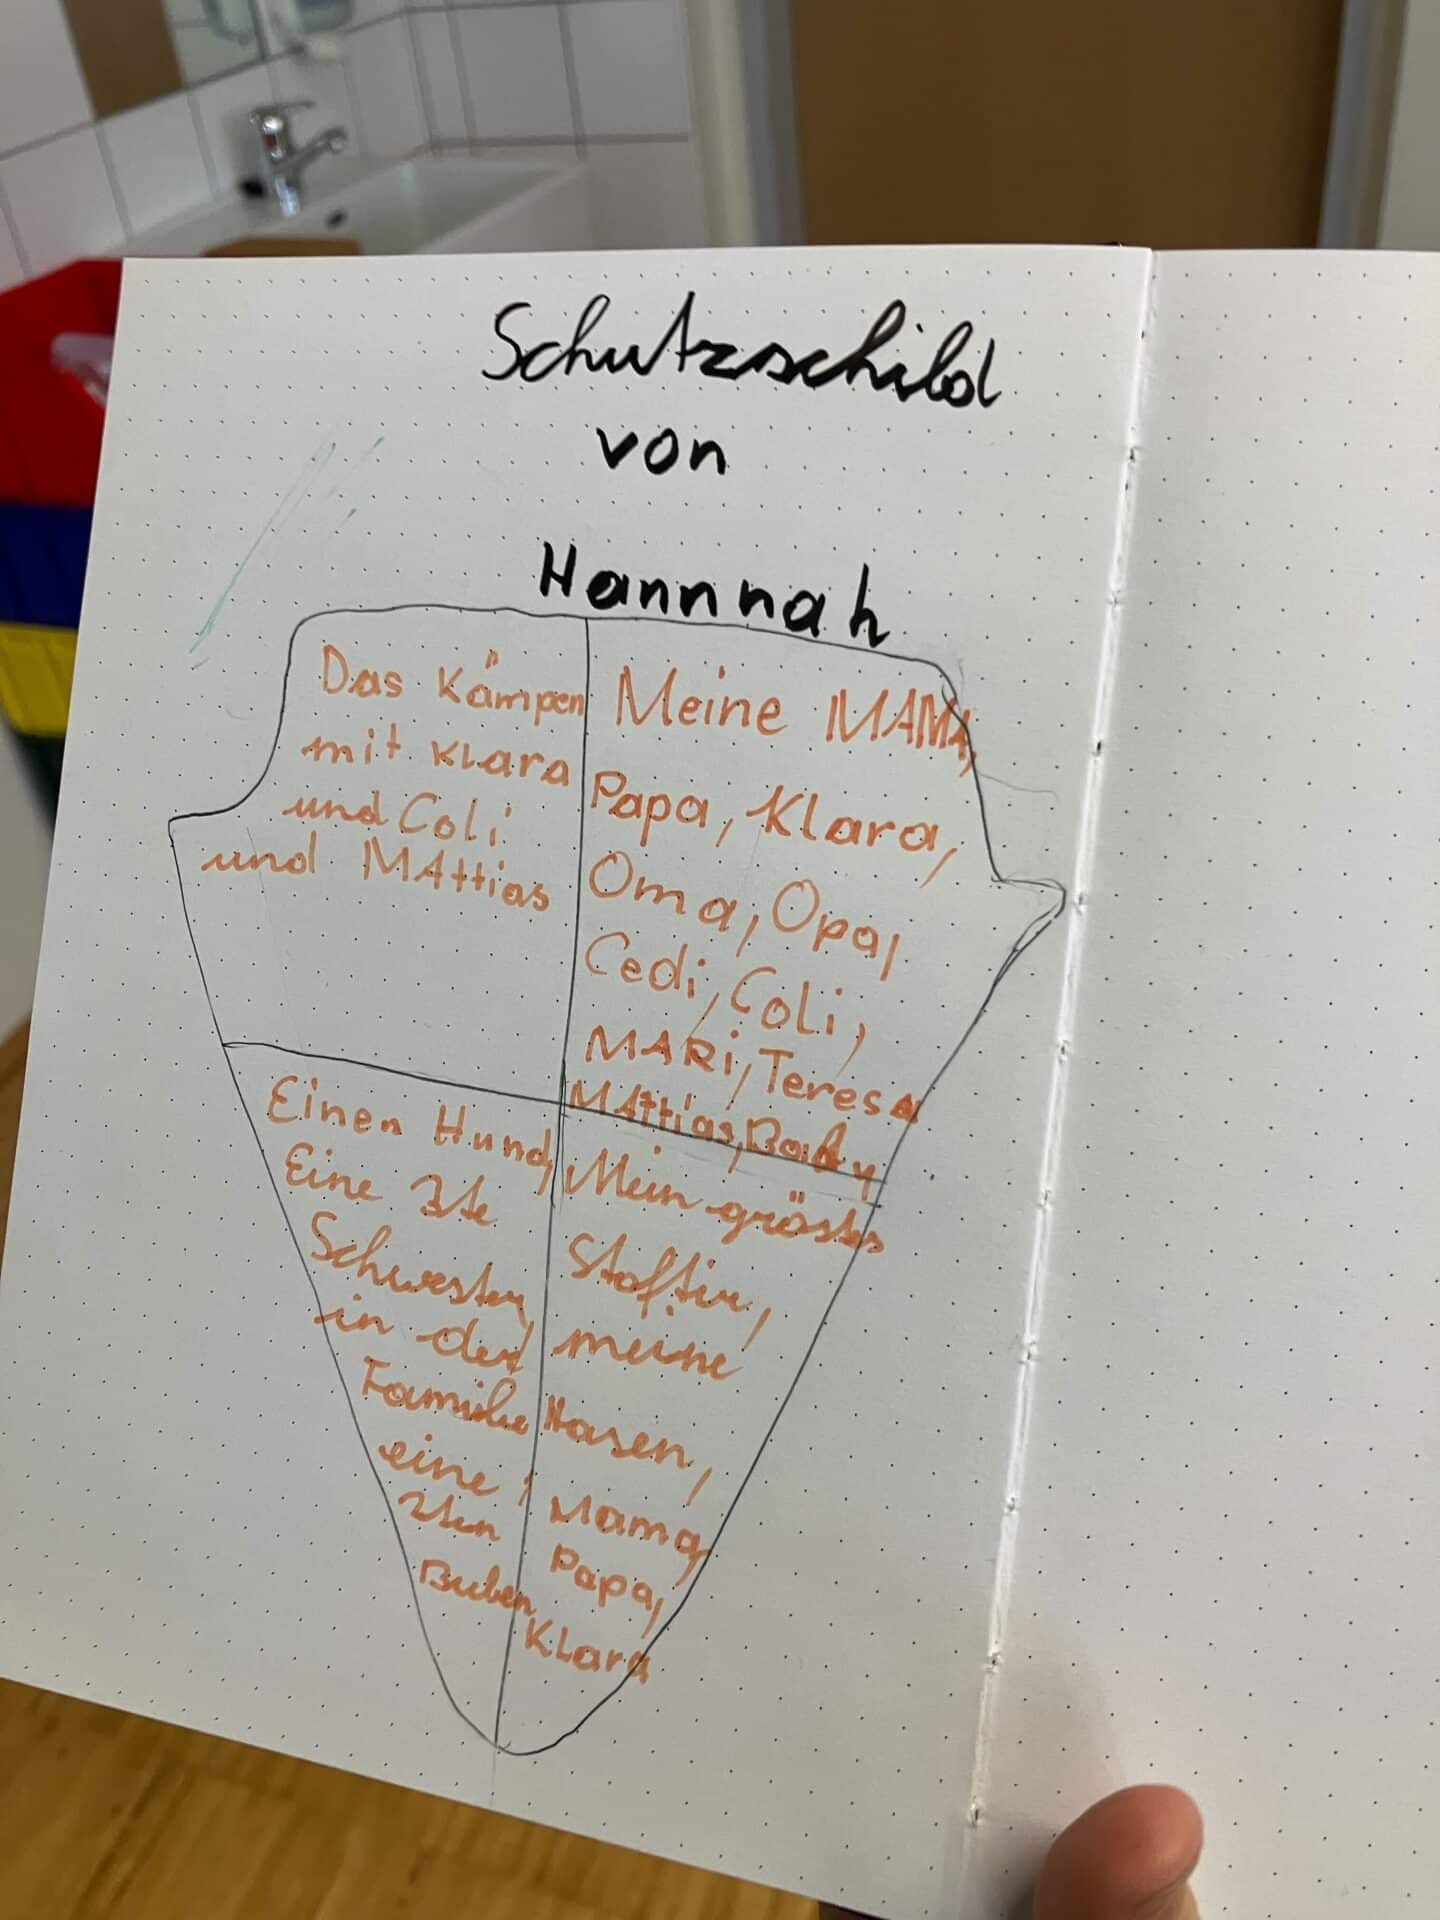 Schutzschild
von
Hannnah
Das Kämpen
mit Klara
und Coli
und MAttias
Meine MAMA,
Papa, Klara,
Oma, Opa,
Cedi, Coli,
MARi, Teresa
MAttias,
Einen Hund,
Eine 2te
Schwester,
in der
Familie
eine,
2ten
Buben
Mein grösstes
Stoftir,
meine
Hasen,
Mama,
Papa,
Klara